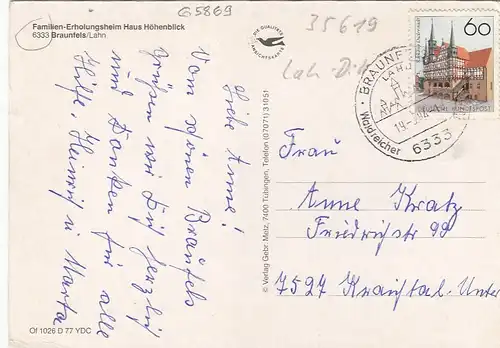 Familien-Erholungsheim Haus Höhenblick
6333 Braunfels/Lahn
G5869
35619
Lah-Dill
DIE QUALITÄTS
ANSICHTSKARTE
60
BRAUNFELS
LAHN
6333
Liebe Anne!
Vom schönen Braunfels
grüßen wir Dich herzlich
und Danken für alle
Hilfe, Heinrich u Marta
Frau
Anne Kratz
Friedrichstr 99
7527 Kraichtal-Unter
© Verlag Gebr. Metz, 7400 Tübingen, Telefon (07071) 31051
Of 1026 D 77 YDC